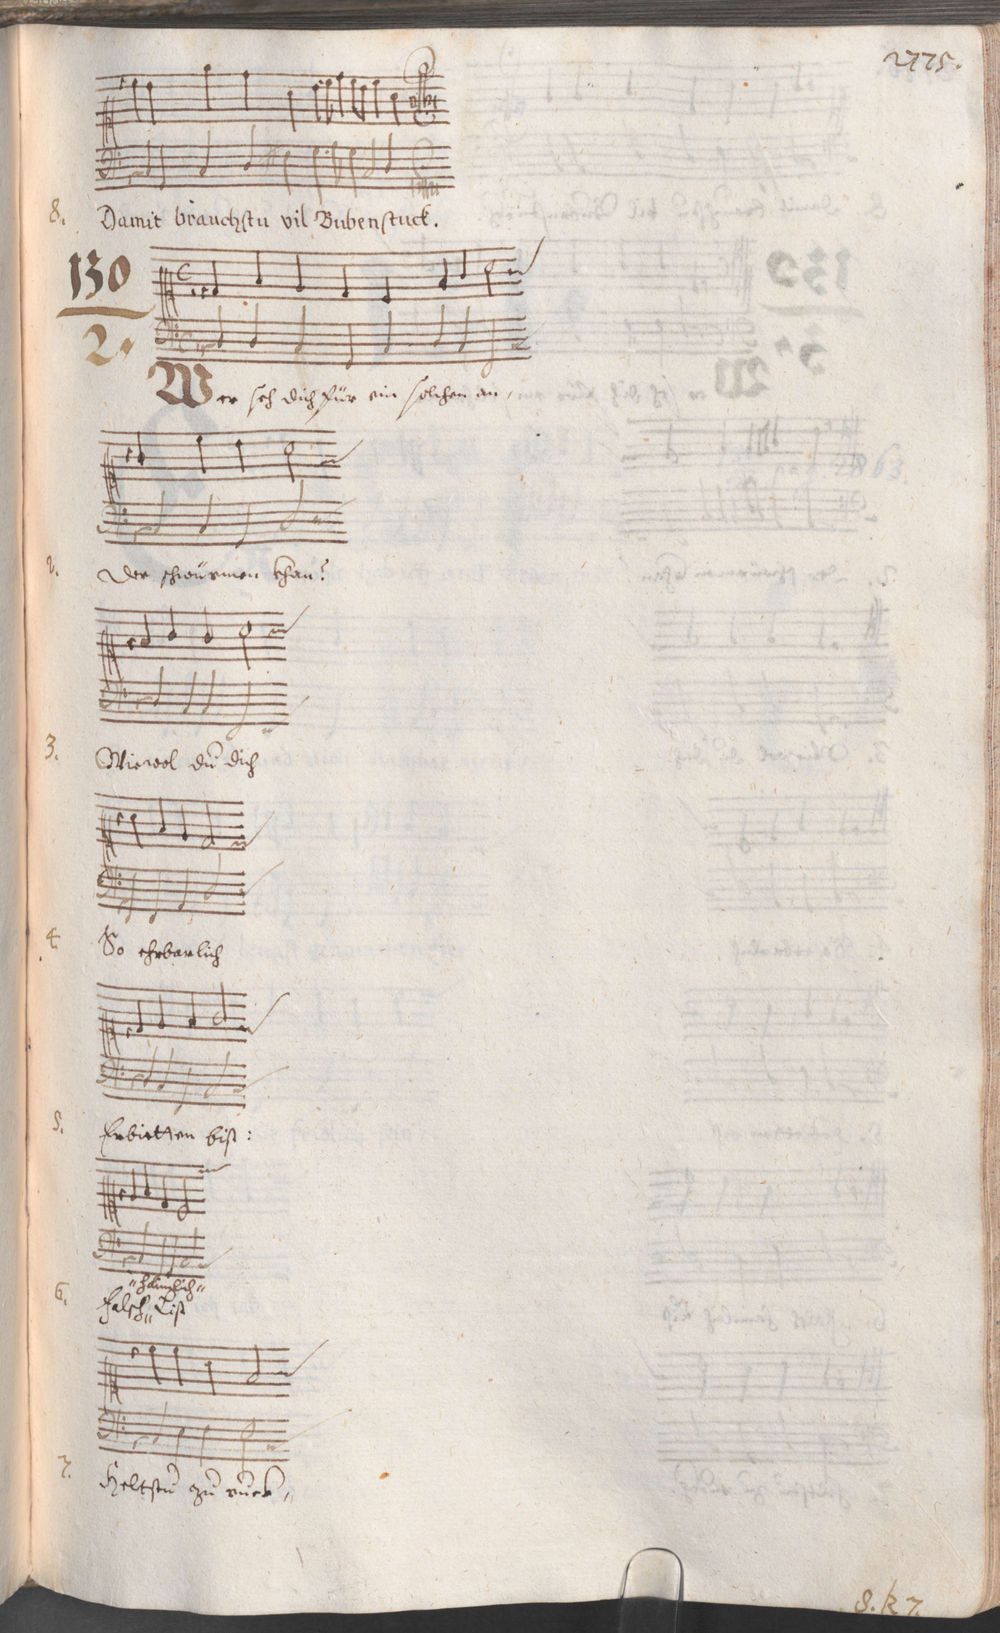 2775.
8. Damit brauchstu vil Bubenstuck.
130
2.
Wer seh dich für ein solchen an,
2. Der schwürmen khan?
3. Wiewol du dich
4. So ehrbarlich
5. Erbietten bist:
"haimlich"
6. Falsch" List
7. Heltstu zu ruck,
S. k 7.